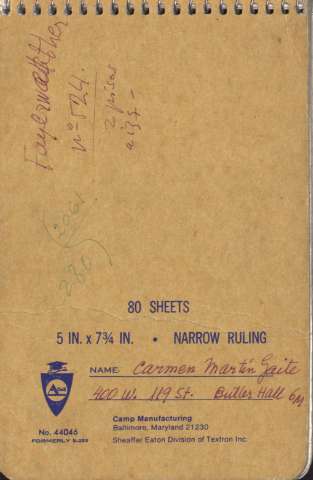 Fayerweather
nº 524.
2 pisos
izq -
2061
280
80 SHEETS
5 IN. x 7¾ IN. • NARROW RULING
NAME: Carmen Martín Gaite
400 W. 119 St. Butler Hall 6M
No. 44046
FORMERLY
Camp Manufacturing
Baltimore, Maryland 21230
Sheaffer Eaton Division of Textron Inc.